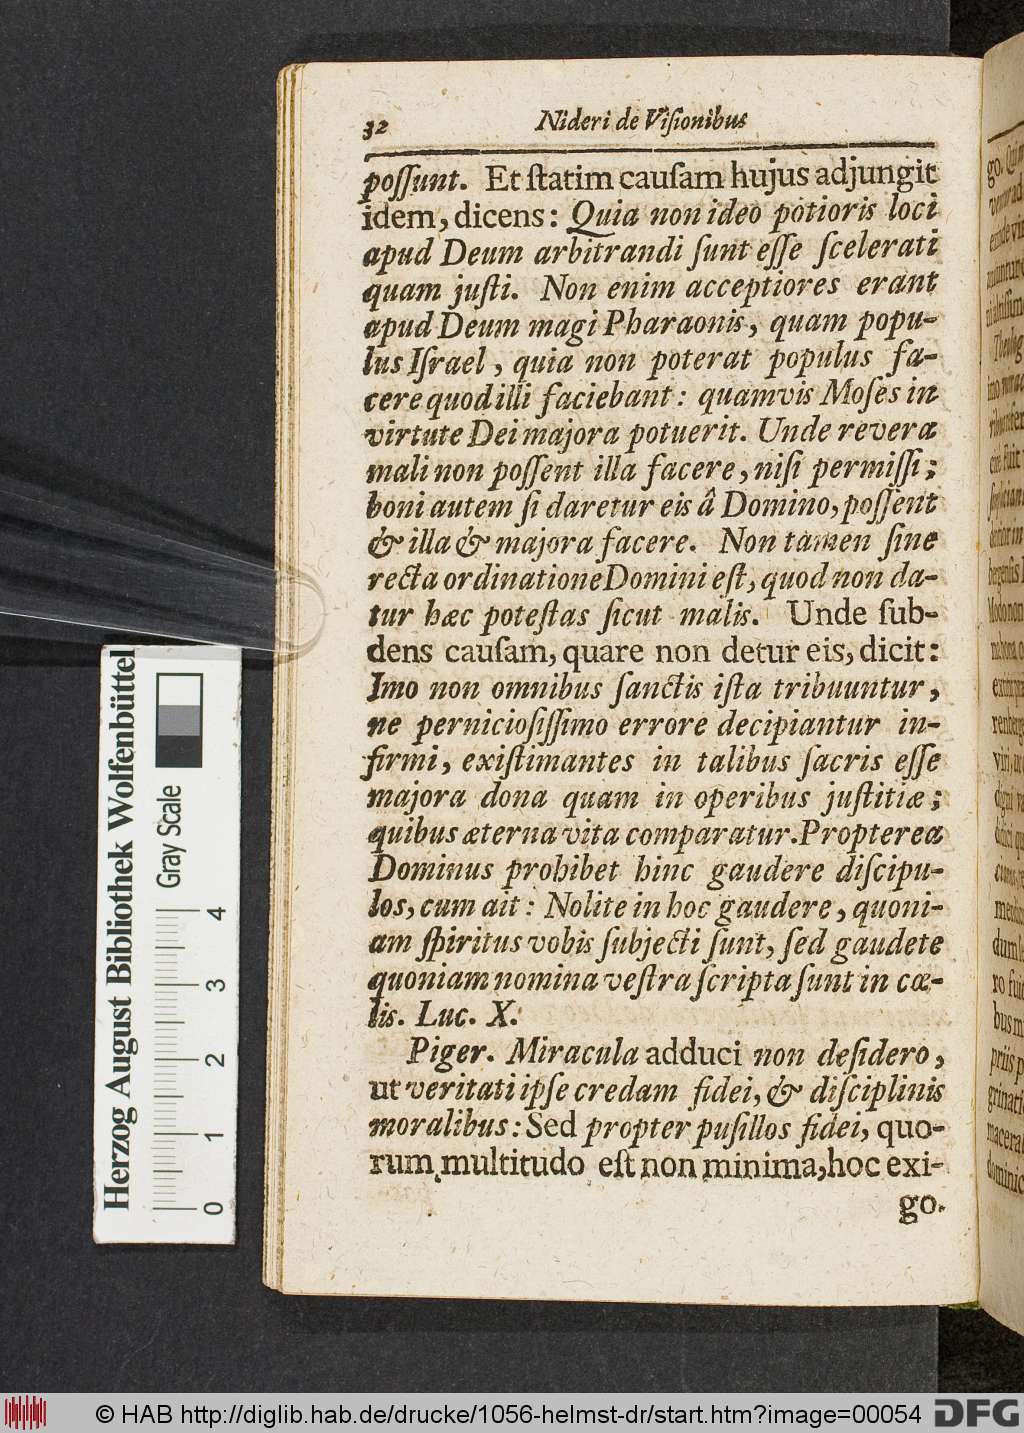 32 Nideri de Viſionibus
poſſunt. Et ſtatim cauſam hujus adjungit
idem, dicens: Quia non ideo potioris loci
apud Deum arbitrandi ſunt eſſe ſcelerati
quam juſti. Non enim acceptiores erant
apud Deum magi Pharaonis, quam popu-
lus Iſrael, quia non poterat populus fa-
cere quod illi faciebant: quamvis Moſes in
virtute Dei majora potuerit. Unde revera
mali non poſſent illa facere, niſi permiſſi;
boni autem ſi daretur eis â Domino, poſſent
& illa & majora facere. Non tamen ſine
recta ordinatione Domini eſt, quod non da-
tur hæc poteſtas ſicut malis. Unde ſub-
dens cauſam, quare non detur eis, dicit:
Imo non omnibus ſanctis iſta tribuuntur,
ne pernicioſiſſimo errore decipiantur in-
firmi, exiſtimantes in talibus ſacris eſſe
majora dona quam in operibus juſtitiæ;
quibus æterna vita comparatur. Propterea
Dominus prohibet hinc gaudere diſcipu-
los, cum ait: Nolite in hoc gaudere, quoni-
am ſpiritus vobis ſubjecti ſunt, ſed gaudete
quoniam nomina veſtra ſcripta ſunt in cœ-
lis. Luc. X.
Piger. Miracula adduci non deſidero,
ut veritati ipſe credam fidei, & diſciplinis
moralibus: Sed propter puſillos fidei, quo-
rum multitudo eſt non minima, hoc exi-
go.
Herzog August Bibliothek Wolfenbüttel
Gray Scale
0 1 2 3 4
© HAB http://diglib.hab.de/drucke/1056-helmst-dr/start.htm?image=00054
DFG